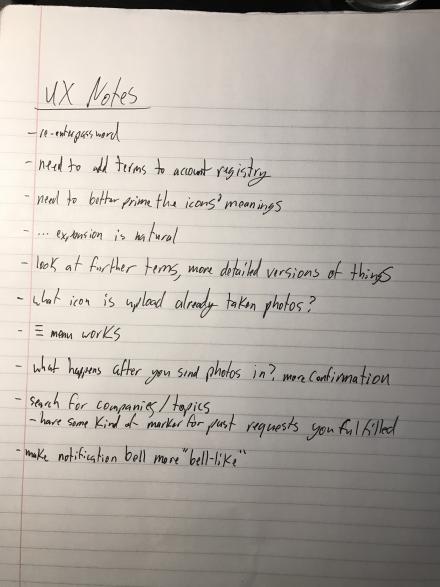 UX Notes
- re-enter password
- need to add terms to account registry
- need to better prime the icons' meanings
- ... expansion is natural
- look at further terms, more detailed versions of things
- what icon is upload already taken photos?
- ☰ menu works
- what happens after you send photos in?, more confirmation
- search for companies/topics
- have some kind of marker for past requests you fulfilled
- make notification bell more "bell-like"